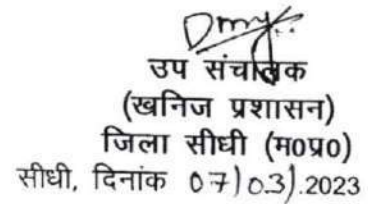 उप संचालक
(खनिज प्रशासन)
जिला सीधी (म0प्र0)
सीधी, दिनांक 07)03).2023